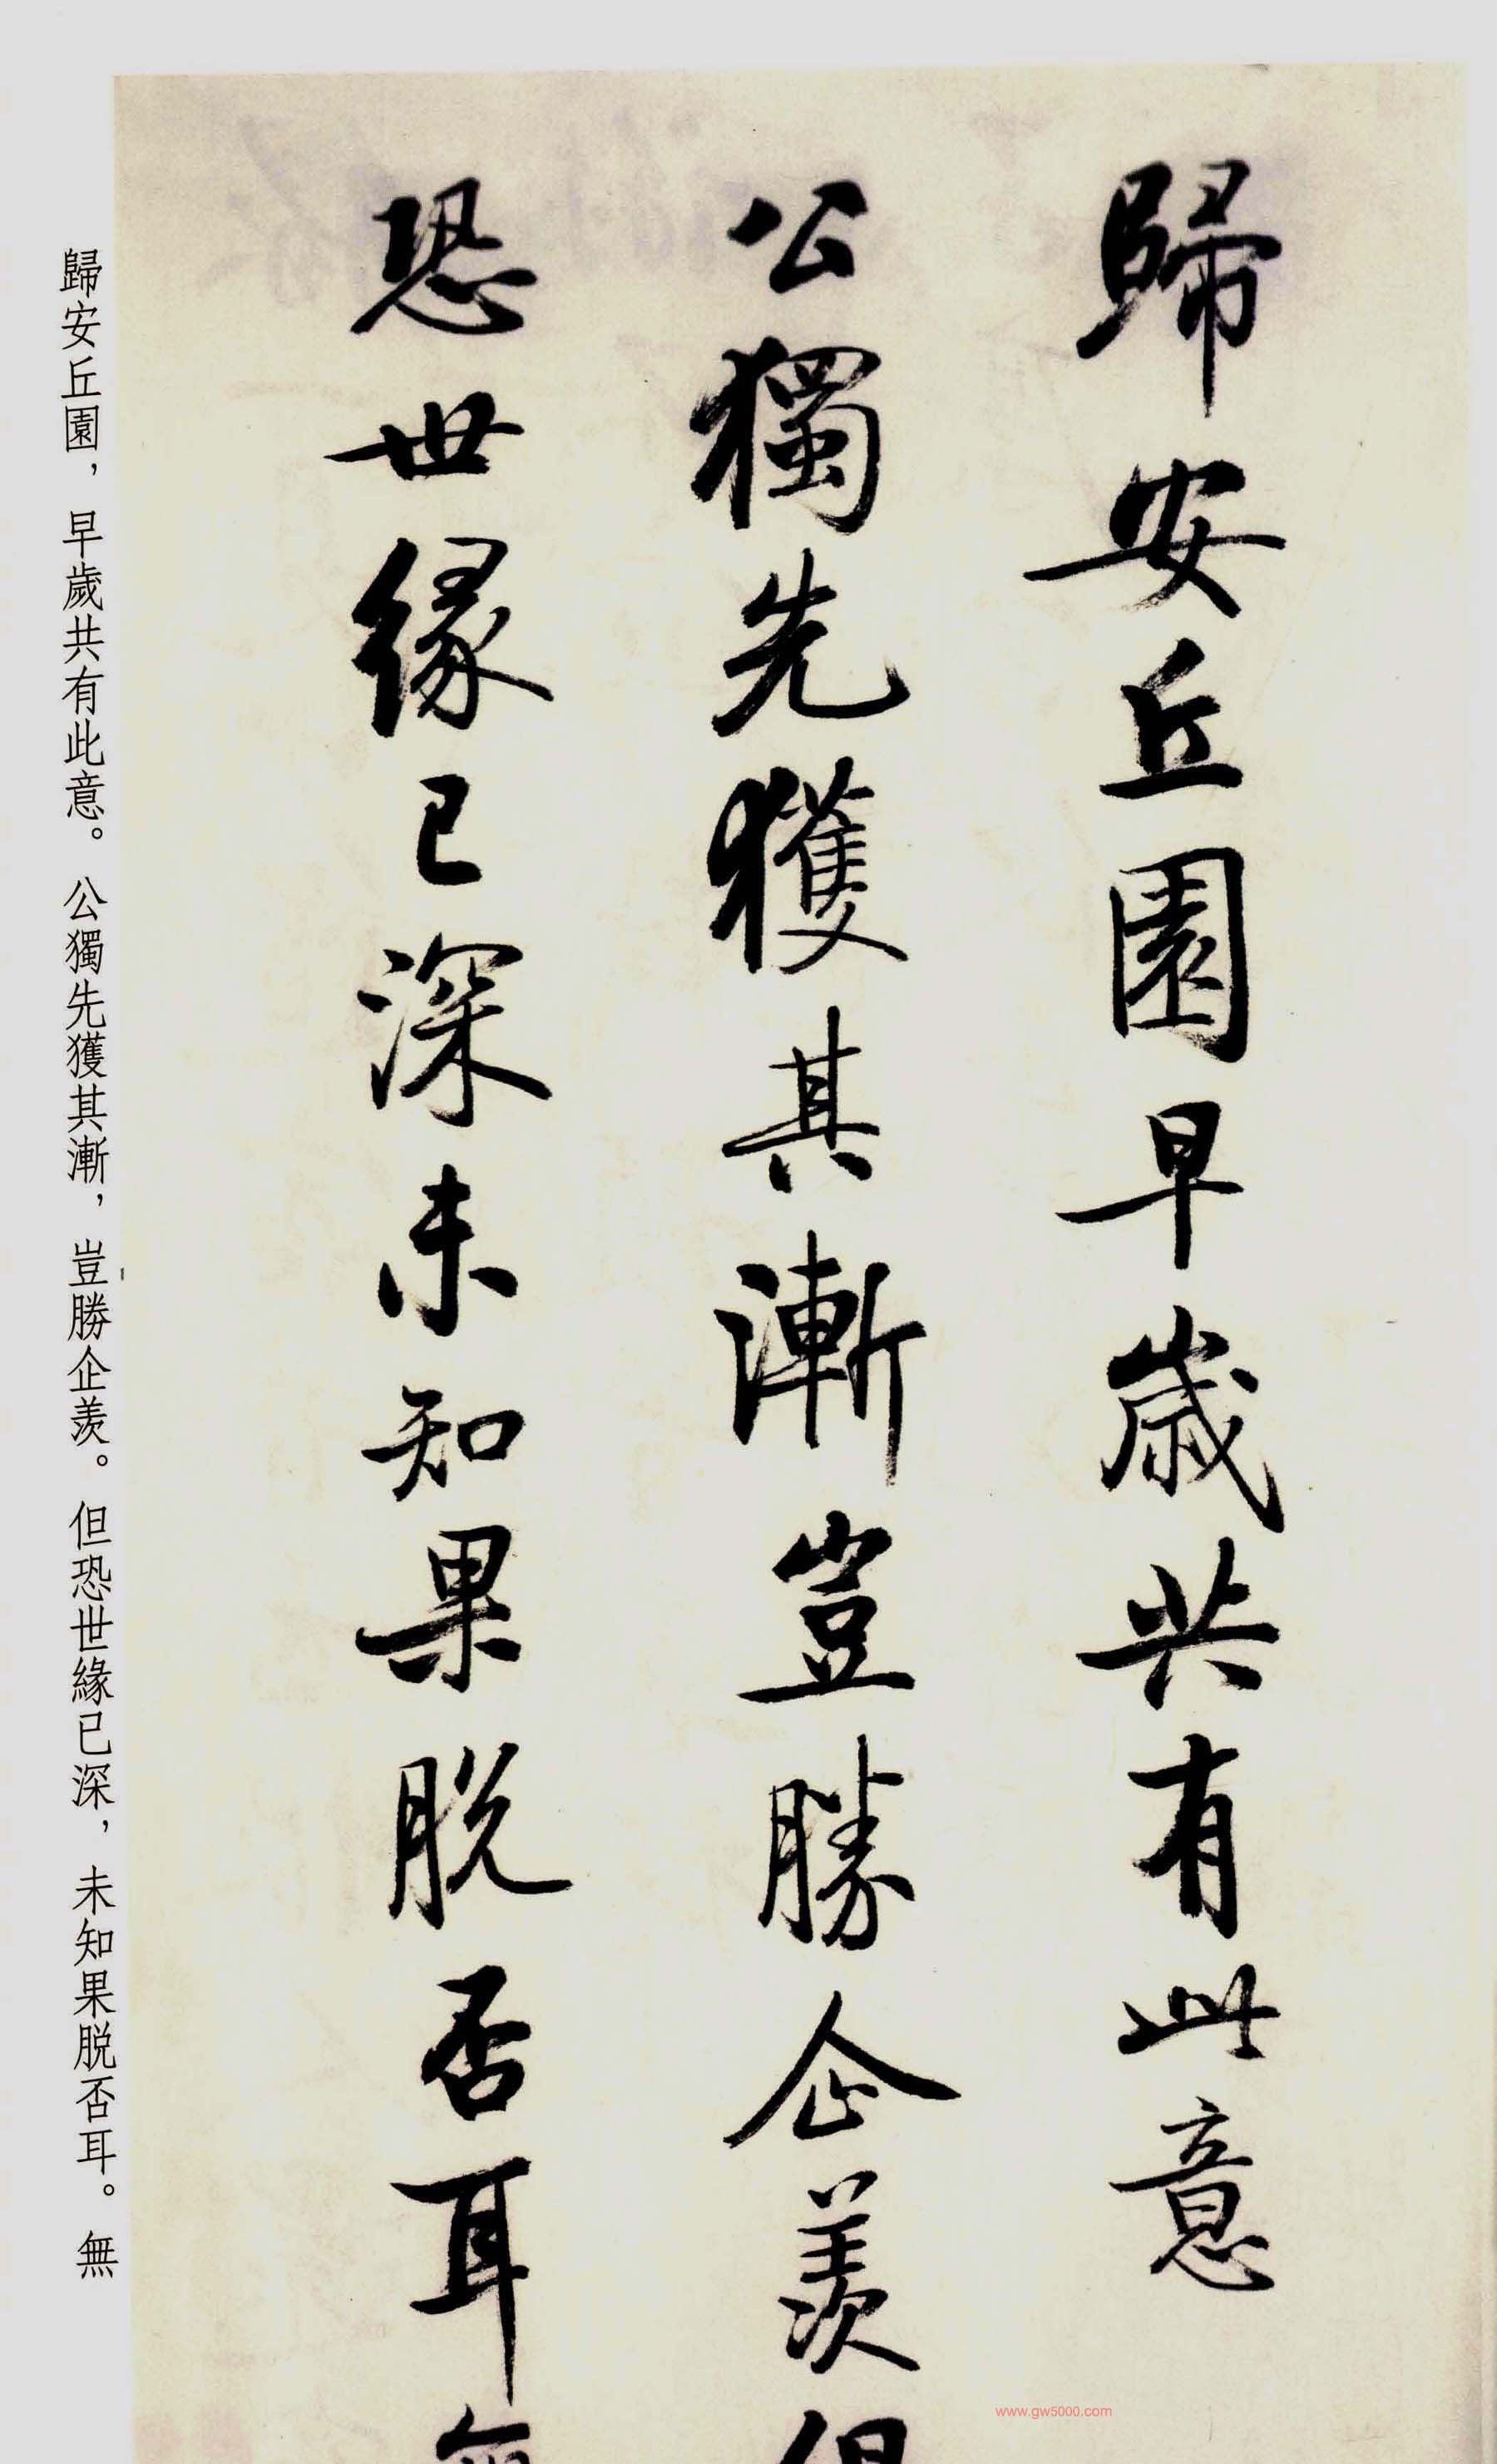 歸安丘園早歲共有此意
公獨先獲其漸豈勝企羨但
恐世緣已深未知果脫否耳無
歸安丘園，早歲共有此意。公獨先獲其漸，豈勝企羨。但恐世緣已深，未知果脫否耳。無
www.gw5000.com